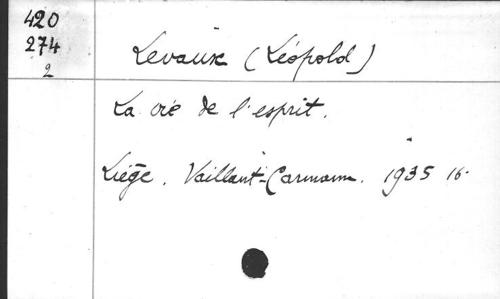 420
274
2
Levaux (Léopold)
La vie de l'esprit.
Liége. Vaillant-Carmann. 1935 16.